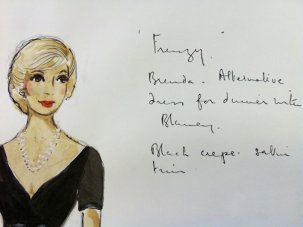 "Frenzy".
Brenda. Alternative
dress for dinner with
Blaney.
Black crepe. satin
trim